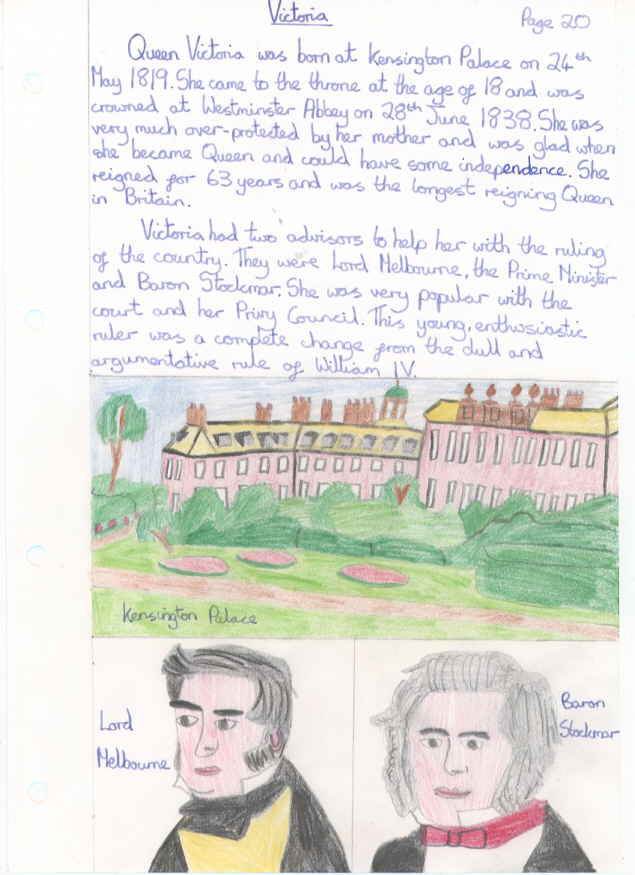 Victoria
Page 20
Queen Victoria was born at Kensington Palace on 24th
May 1819. She came to the throne at the age of 18 and was
crowned at Westminster Abbey on 28th June 1838. She was
very much over-protected by her mother and was glad when
she became Queen and could have some independence. She
reigned for 63 years and was the longest reigning Queen
in Britain.
Victoria had two advisors to help her with the ruling
of the country. They were Lord Melbourne, the Prime Minister
and Baron Stockmar. She was very popular with the
court and her Privy Council. This young, enthusiastic
ruler was a complete change from the dull and
argumentative rule of William IV.
Kensington Palace
Lord
Melbourne
Baron
Stockmar